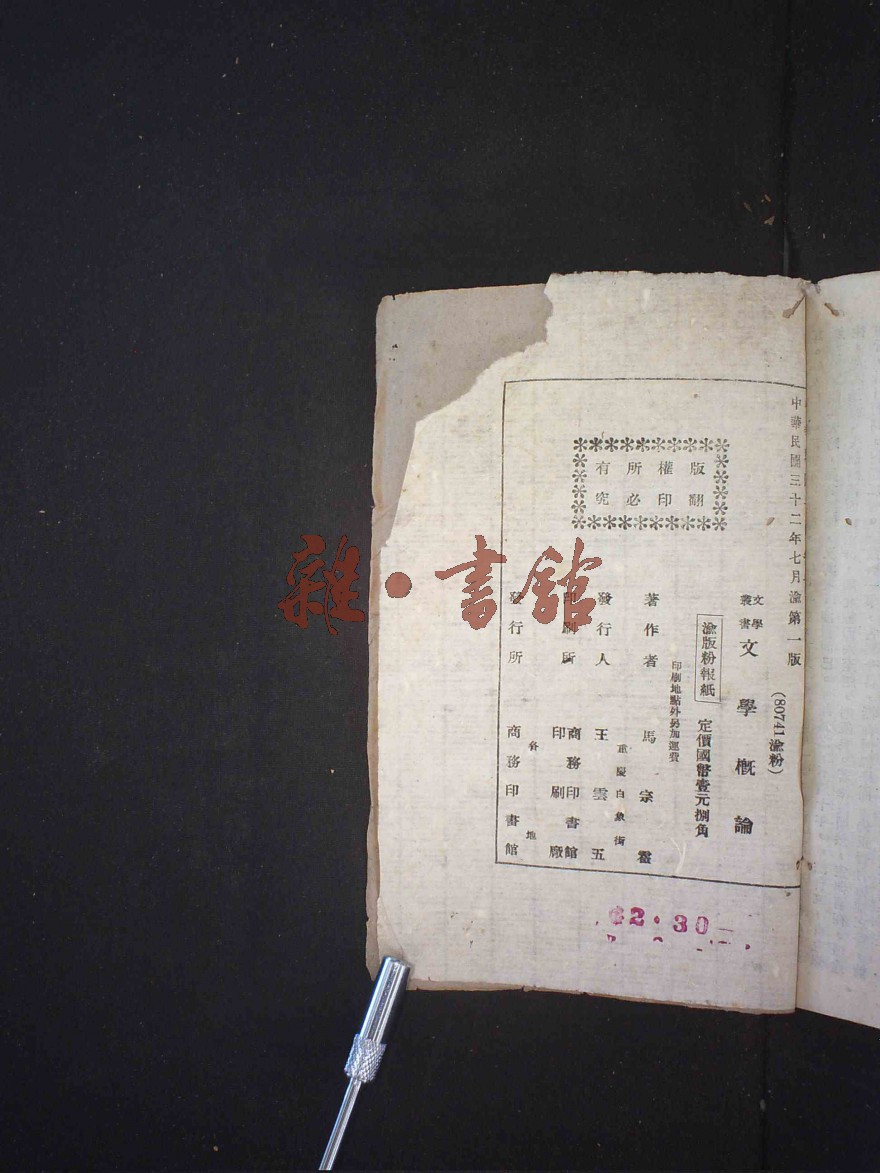 中華民國三十二年七月渝第一版
(80741渝粉)
文學叢書 文學概論
渝版粉報紙 定價國幣壹元捌角
印刷地點外另加運費
版權所有
翻印必究
著作者 馬宗霍
重慶白象街
發行人 王雲五
印刷所 商務印書館印刷廠
各地
發行所 商務印書館
雜·書館